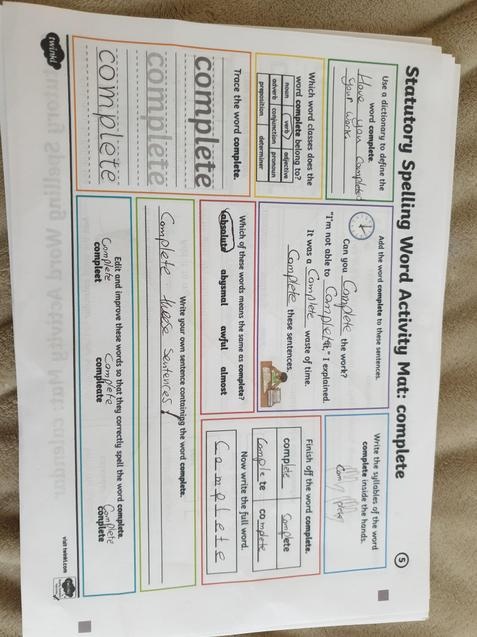 Statutory Spelling Word Activity Mat: complete
5
Use a dictionary to define the
word complete.
Have you completed
your work.
Add the word complete to these sentences.
Can you Complete the work?
"I'm not able to Complete it," I explained.
It was a Complete waste of time.
Complete these sentences.
Write the syllables of the word
complete inside the hands.
Which word classes does the
word complete belong to?
noun verb adjective
adverb conjunction pronoun
preposition determiner
Which of these words means the same as complete?
absolute abysmal awful almost
Finish off the word complete.
complete complete
complete complete
Now write the full word.
Complete
Trace the word complete.
complete
complete
complete
Write your own sentence containing the word complete.
Complete these sentences!
Edit and improve these words so that they correctly spell the word complete.
Complete Complete Complete
compleet compleate conplete
twinkl
visit twinkl.com